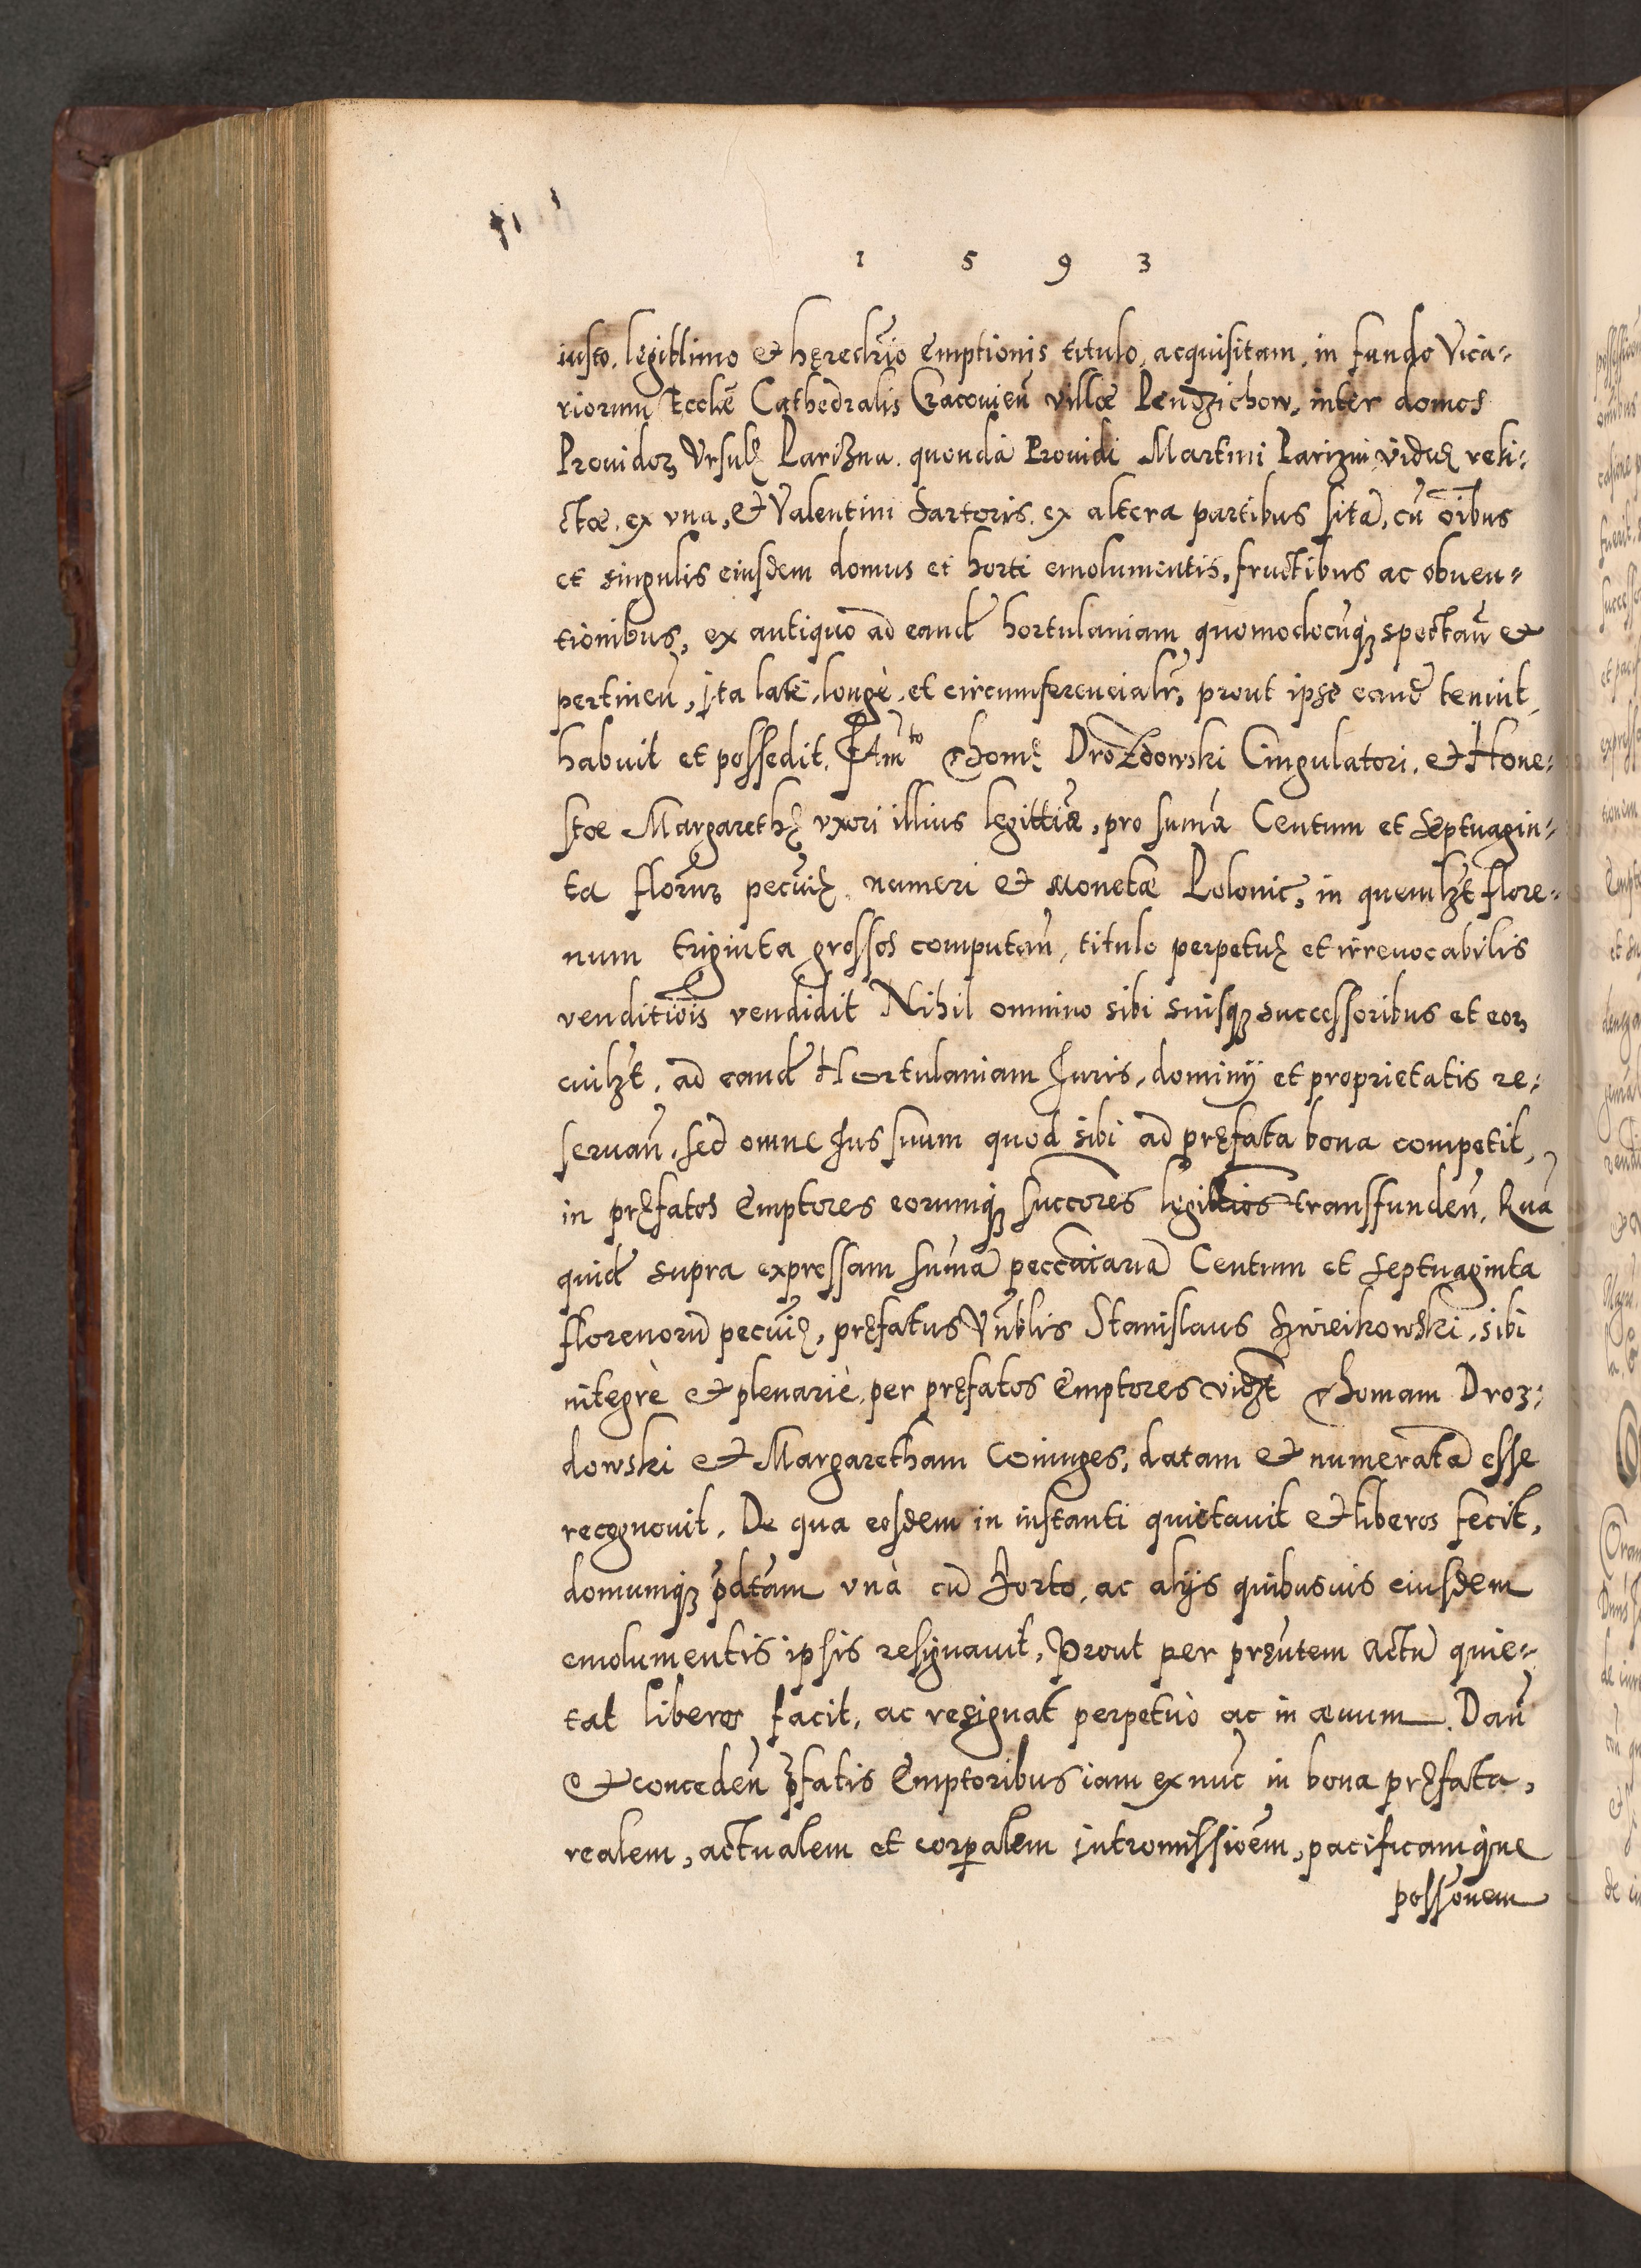 1 5 9 3
iusto, legittimo et hęredrio Emptionis titulo, acquisitam, in fundo Vica-
riorum Eccliē Cathedralis Cracovien̄ villæ Pendzichow, inter domos
Providoꝝ Ursulę Parizna quondā Providi Martini Parizni viduę reli-
ctæ, ex una, et Valentini Sartoris, ex altera partibus sitā, cū oībus
et singulis eiusdem domus et horti emolumentis, fructibus ac obven-
tionibus, ex antiquo ad eand̄ hortulaniam quomodocūqꝫ spectan̄ et
pertinen̄, ita late, longè, et circumferencialr̄, prout ipse eand̄ tenuit,
habuit et possedit. Fam̄to Thomę Drozdowski Cingulatori, et Hone-
stæ Margarethę uxori illius legittīæ, pro sum̄a Centum et Septuagin-
ta florūꝝ pecūię, numeri et Monetæ Polonicę, in quemlꝫt flore-
num triginta grossos computan̄, titulo perpetuę et irrevocabilis
venditiōis vendidit Nihil omnino sibi suisqꝫ successoribus et eoꝝ
cuilꝫt, ad eand̄ Hortulaniam Juris, dominÿ et proprietatis re-
servan̄, sed omne Jus suum quod sibi ad pręfata bona competit,
in pręfatos Emptores eorumqꝫ succores legittīos transfunden̄, Quā
quid̄ supra expressam sum̄ā peccūiariā Centum et Septuaginta
florenorū pecūię, pręfatus Vn̄blis Stanislaus sibi
integrè et plenariè, per pręfatos Emptores vidꝫt Thomam Droz-
dowski et Margaretham Coniuges, datam et numeratā esse
recognovit, De qua eosdem in instanti quietavit et liberos fecit,
domumqꝫ p̄dtam unà cū Horto, ac alijs quibusvis eiusdem
emolumentis ipsis resignavit, Prout per pręn̄tem Actū quie-
tat liberos facit, ac resignat perpetuò ac in ævum. Dan̄
et conceden̄ p̄fatis Emptoribus iam ex nūc in bona pręfata,
realem, actualem et corp̄alem intromissiōem, pacificamqꝫue
possōnem